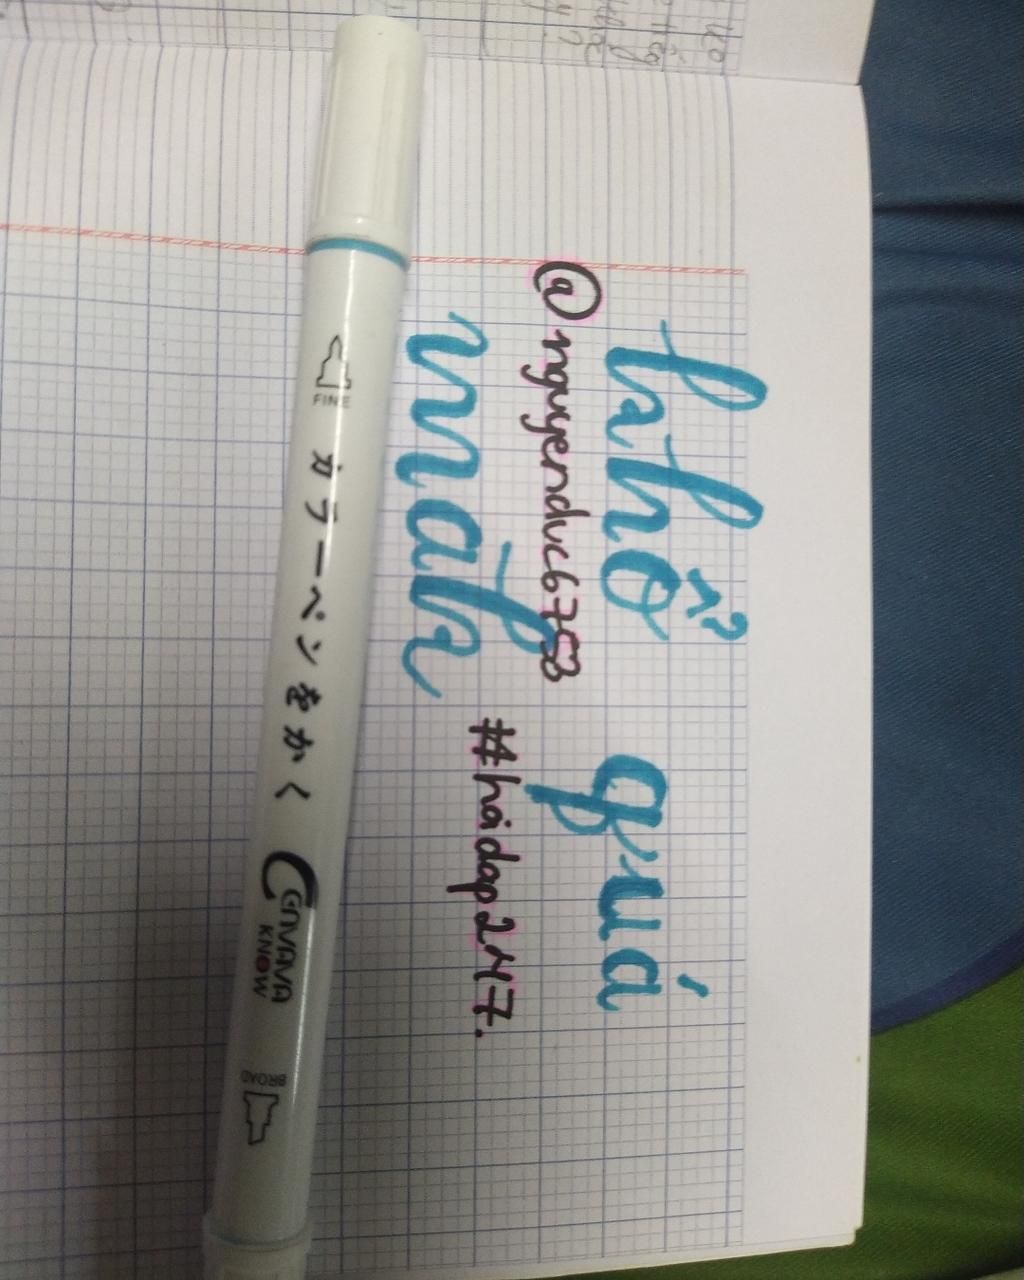 khổ quá
@nguyenduc6753
mah
#hoidap247.
FINE カラーペンをかく KNOW BROAD